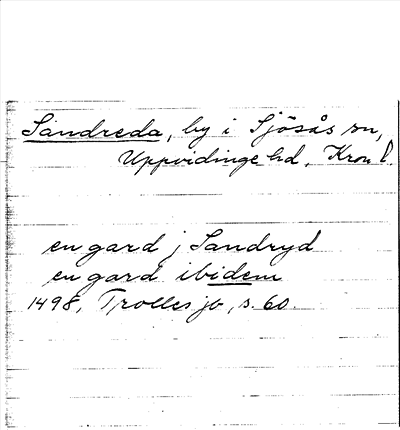 Sandreda, by i Sjösås sn,
Uppvidinge hd. Kron l.
en gard j Sandryd
en gard ibidem
1498, Trolles jb, s. 60.